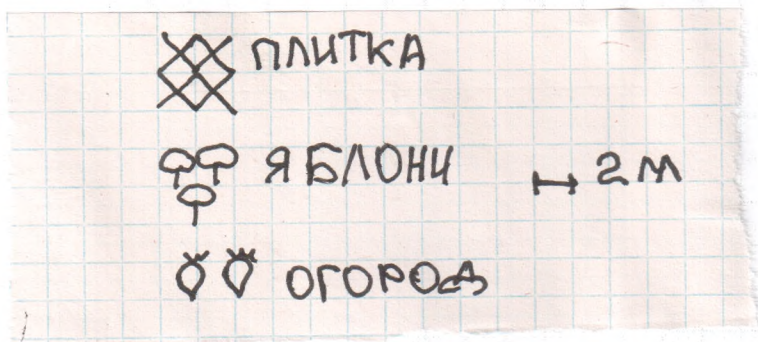 ПЛИТКА
ЯБЛОНИ
2 м
ОГОРОД